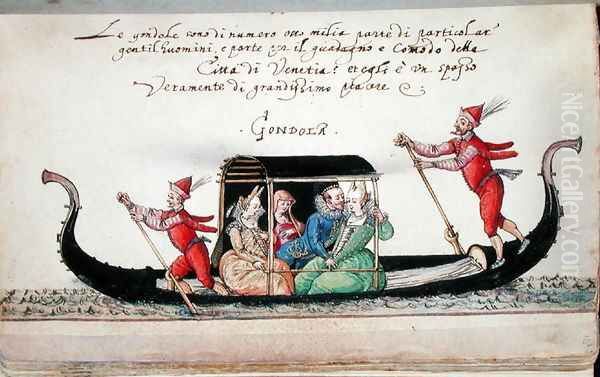 Le gondole sono di numero otto milia parte di particolar
gentilhuomini, e parte per il guadagno e Comodo della
Citta di Venetia: et egli è un spasso
Veramente di grandissimo piacere
GONDOLA.
NiceArtGallery.com